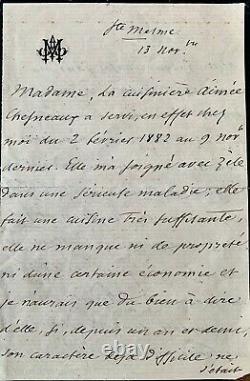 Ste Mesme
13 Novbre
Madame, La cuisinière Aimée
Chesneaux a servi, en effet chez
moi du 2 février 1882 au 9 novbre
dernier. Elle m'a soigné avec zèle
dans une sérieuse maladie; elle
fait une cuisine très suffisante,
elle ne manque ni de propreté
ni d'une certaine économie et
je n'aurais que du bien à dire
d'elle, si, depuis un an et demi,
son caractère déjà difficile ne
s'était